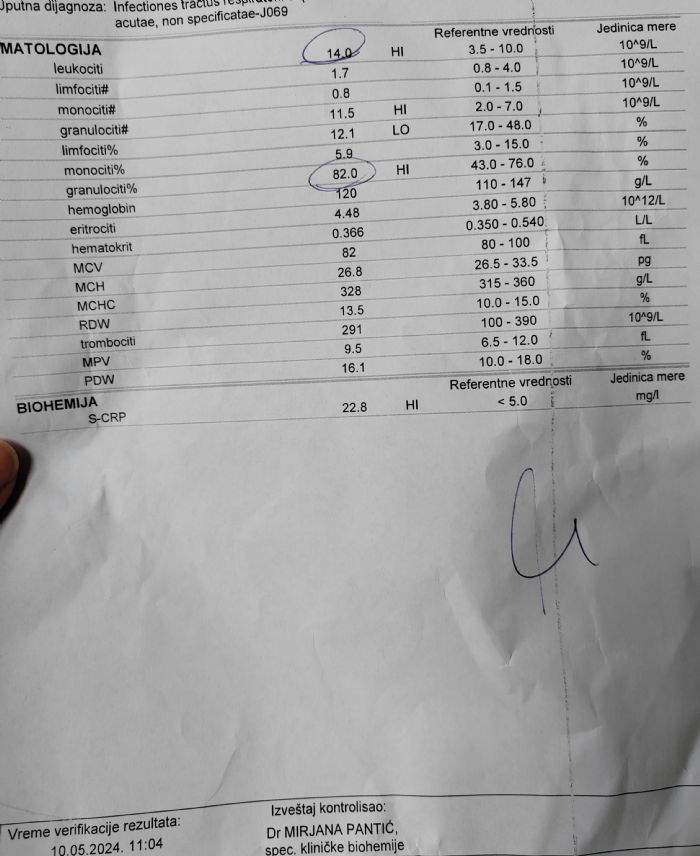 Uputna dijagnoza: Infectiones tractus
acutae, non specificatae-J069
MATOLOGIJA Referentne vrednosti Jedinica mere
leukociti 14.0 HI 3.5 - 10.0 10^9/L
limfociti# 1.7 0.8 - 4.0 10^9/L
monociti# 0.8 0.1 - 1.5 10^9/L
granulociti# 11.5 HI 2.0 - 7.0 10^9/L
limfociti% 12.1 LO 17.0 - 48.0 %
monociti% 5.9 3.0 - 15.0 %
granulociti% 82.0 HI 43.0 - 76.0 %
hemoglobin 120 110 - 147 g/L
eritrociti 4.48 3.80 - 5.80 10^12/L
hematokrit 0.366 0.350 - 0.540 L/L
MCV 82 80 - 100 fL
MCH 26.8 26.5 - 33.5 pg
MCHC 328 315 - 360 g/L
RDW 13.5 10.0 - 15.0 %
trombociti 291 100 - 390 10^9/L
MPV 9.5 6.5 - 12.0 fL
PDW 16.1 10.0 - 18.0 %
BIOHEMIJA Referentne vrednosti Jedinica mere
S-CRP 22.8 HI < 5.0 mg/l
Vreme verifikacije rezultata: Izveštaj kontrolisao:
10.05.2024. 11:04 Dr MIRJANA PANTIĆ,
spec. kliničke biohemije